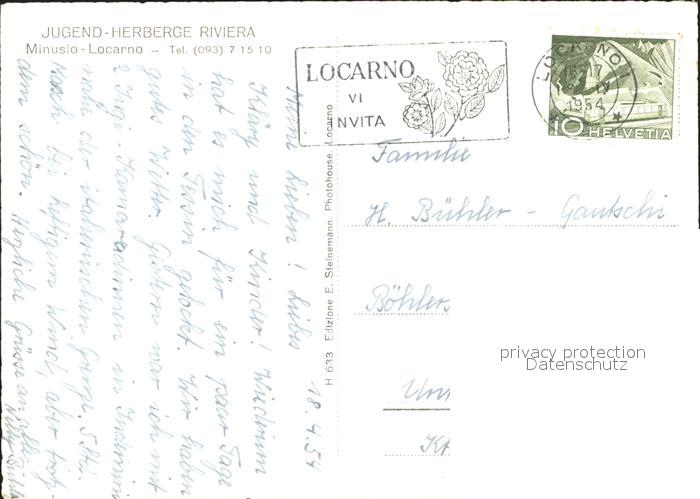 JUGEND-HERBERGE RIVIERA
Minusio-Locarno – Tel. (093) 7 15 10
LOCARNO
VI
INVITA
LOCARNO 1
18. IV
1954
10 HELVETIA
H 633 Edizione E. Steinemann, Photohouse, Locarno
18.4.54
Meine Lieben! Liebes
Kläry und Kinder! Wiederum
hat es mich für ein paar Tage
in den Tessin gelockt. Wir haben
gutes Wetter. Gestern war ich mit
2 Jugi-Kameradinnen in
nahe der italienischen Grenze. 5 Std.
Marsch bei heftigem Wind, aber trotz-
dem schön. Herzliche Grüsse an alle
Familie
H. Bühler - Gautschi
Böhlers
Un
privacy protection
Datenschutz